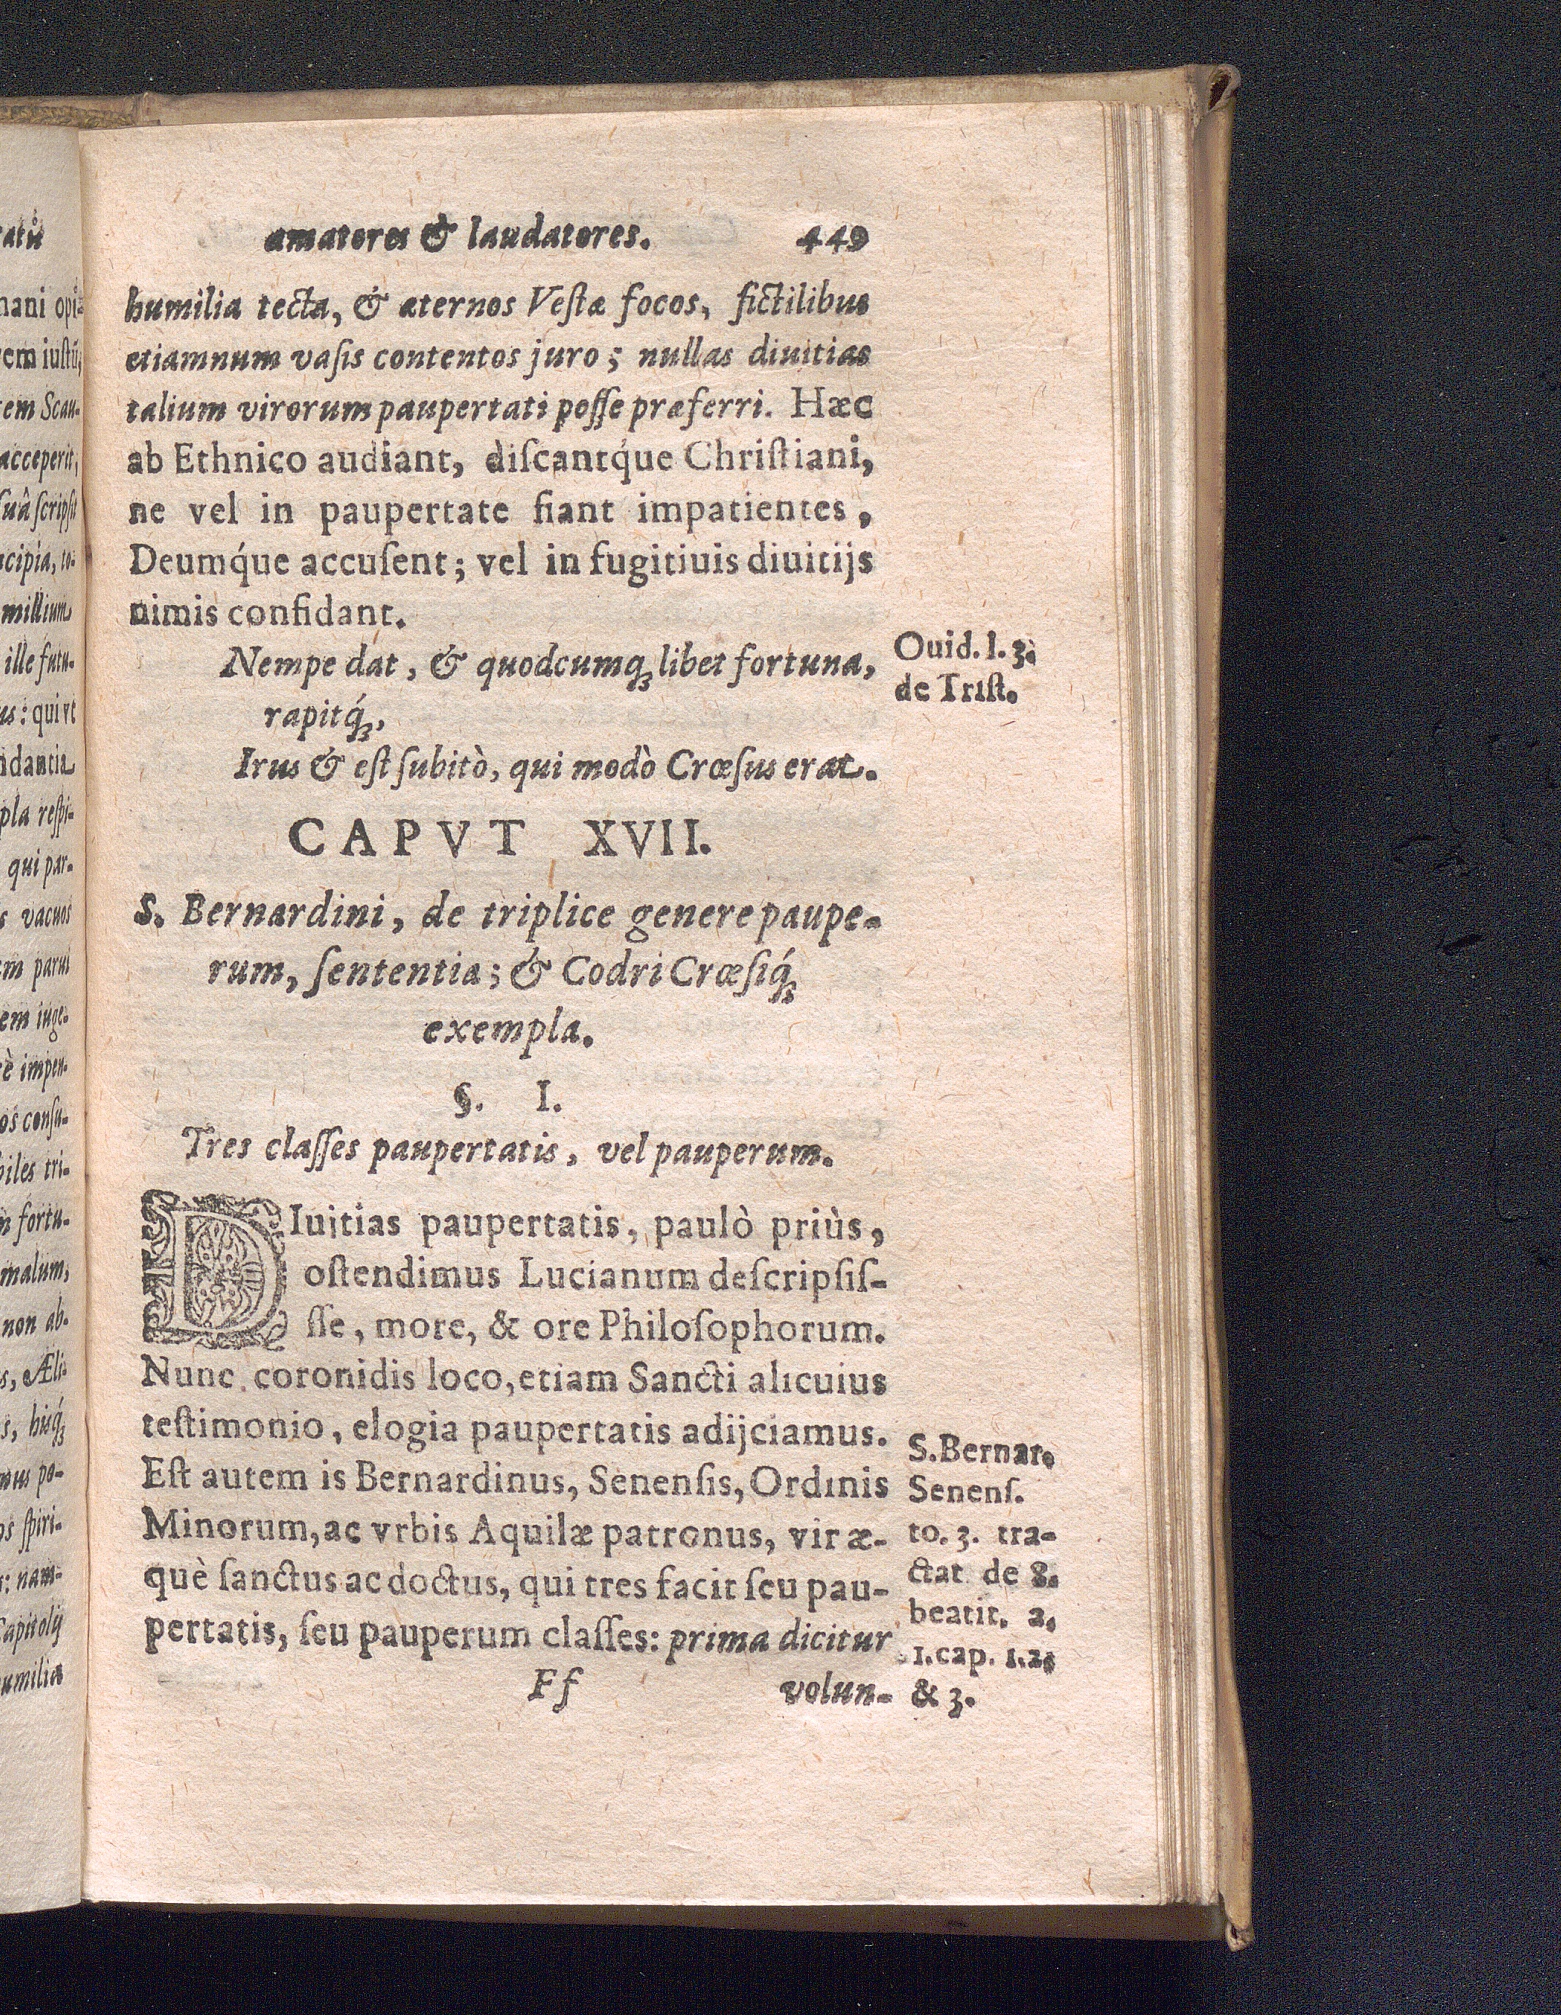 amatores & laudatores. 449
humilia tecta, & aternos Veſtæ focos, fictilibus
etiamnum vaſis contentos juro; nullas diuitias
talium virorum paupertati poſſe præferri. Hæc
ab Ethnico audiant, diſcantq́ue Chriſtiani,
ne vel in paupertate fiant impatientes,
Deumq́ue accuſent; vel in fugitiuis diuitijs
nimis confidant.
Nempe dat, & quodcumqꝫ libet fortuna,
rapitq́ꝫ,
Irus & eſt ſubitò, qui modò Crœſus erat.
Ouid. l. 3.
de Triſt.
CAPVT XVII.
S. Bernardini, de triplice genere paupe-
rum, ſententia; & Codri Crœſiq́ꝫ
exempla.
§. I.
Tres claſſes paupertatis, vel pauperum.
DIuitias paupertatis, paulò priùs,
oſtendimus Lucianum deſcripſiſ-
ſſe, more, & ore Philoſophorum.
Nunc coronidis loco, etiam Sancti alicuius
teſtimonio, elogia paupertatis adijciamus.
Eſt autem is Bernardinus, Senenſis, Ordinis
Minorum, ac vrbis Aquilæ patronus, vir æ-
què ſanctus ac doctus, qui tres facit ſeu pau-
pertatis, ſeu pauperum claſſes: prima dicitur
Ff volun-
S. Bernar.
Senenſ.
to. 3. tra-
ctat de 8.
beatit. a.
1. cap. 1.2.
& 3.